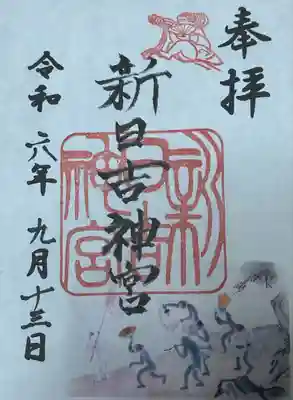 奉拝
新日吉神宮
令和六年九月十三日
新日吉神宮